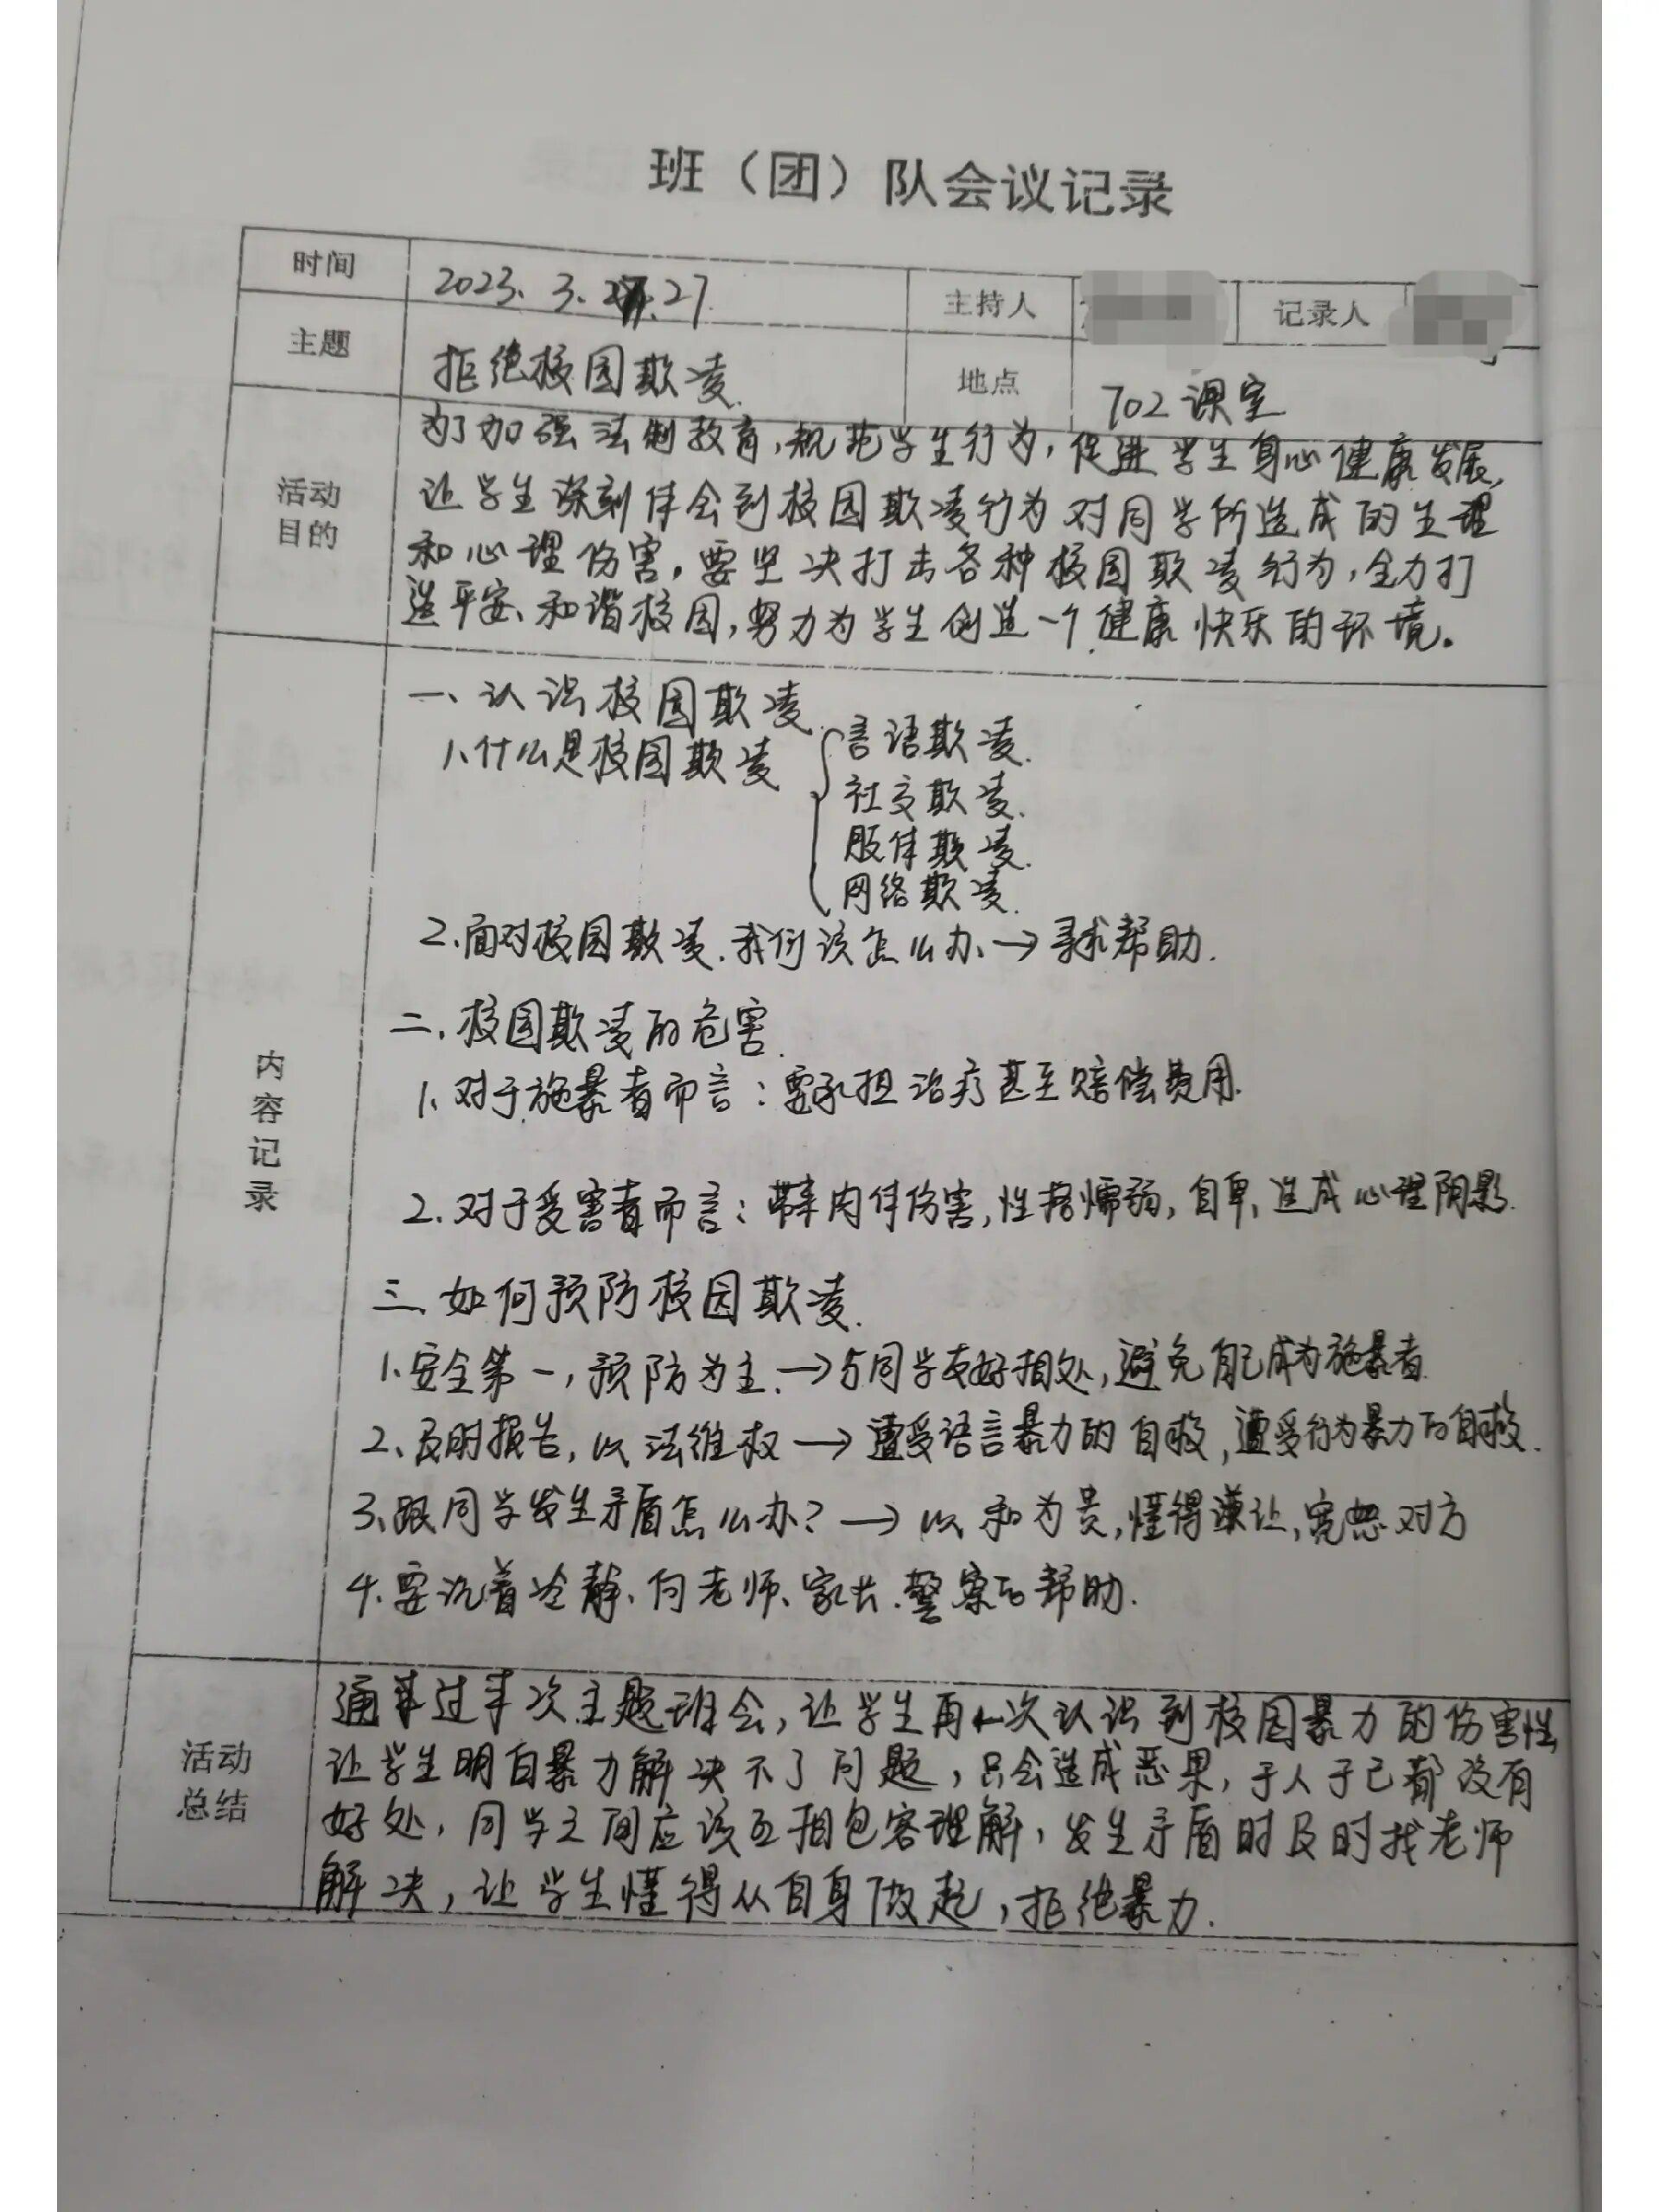 班（团）队会议记录
时间 2023. 3. 27. 主持人 记录人
主题 拒绝校园欺凌. 地点 702课室
活动目的
为了加强法制教育,规范学生行为,促进学生身心健康发展,
让学生深刻体会到校园欺凌行为对同学所造成的生理
和心理伤害,要坚决打击各种校园欺凌行为,全力打
造平安、和谐校园,努力为学生创造一个健康快乐的环境。
内容记录
一、认识校园欺凌.
1、什么是校园欺凌
言语欺凌.
社交欺凌.
肢体欺凌.
网络欺凌.
2、面对校园欺凌.我们该怎么办、→寻求帮助.
二、校园欺凌的危害.
1、对于施暴者而言：要承担治疗甚至赔偿费用.
2、对于受害者而言：带来肉体伤害,性格懦弱,自卑、造成心理阴影.
三、如何预防校园欺凌.
1、安全第一,预防为主.→与同学友好相处,避免自己成为施暴者.
2、及时报告,以法维权→遭受语言暴力的自救,遭受行为暴力的自救.
3、跟同学发生矛盾怎么办?→以和为贵,懂得谦让,宽恕对方
4、要沉着冷静、向老师、家长.警察的帮助.
活动总结
通过本次主题班会,让学生再一次认识到校园暴力的伤害性
让学生明白暴力解决不了问题,只会造成恶果,于人于己都没有
好处,同学之间应该互相包容理解,发生矛盾时及时找老师
解决,让学生懂得从自身做起,拒绝暴力.